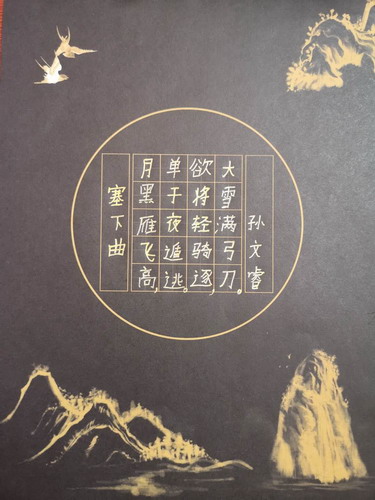 塞下曲
月黑雁飞高，
单于夜遁逃。
欲将轻骑逐，
大雪满弓刀。
孙文睿